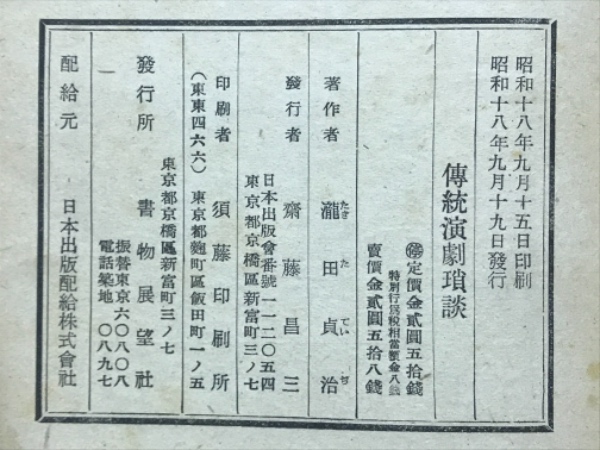 昭和十八年九月十五日印刷
昭和十八年九月十九日發行
傳統演劇瑣談
㊕定價金貳圓五拾錢
特別行爲税相當額金八錢
賣價金貳圓五拾八錢
著作者 瀧田貞治
たき た てい ぢ
發行者 齋藤昌三
日本出版會番號一一二〇五四
東京都京橋區新富町三ノ七
印刷者 須藤印刷所
(東東四六六) 東京都麴町區飯田町一ノ五
東京都京橋區新富町三ノ七
發行所 書物展望社
振替東京六〇八〇八
電話築地 〇八九七
配給元 日本出版配給株式會社